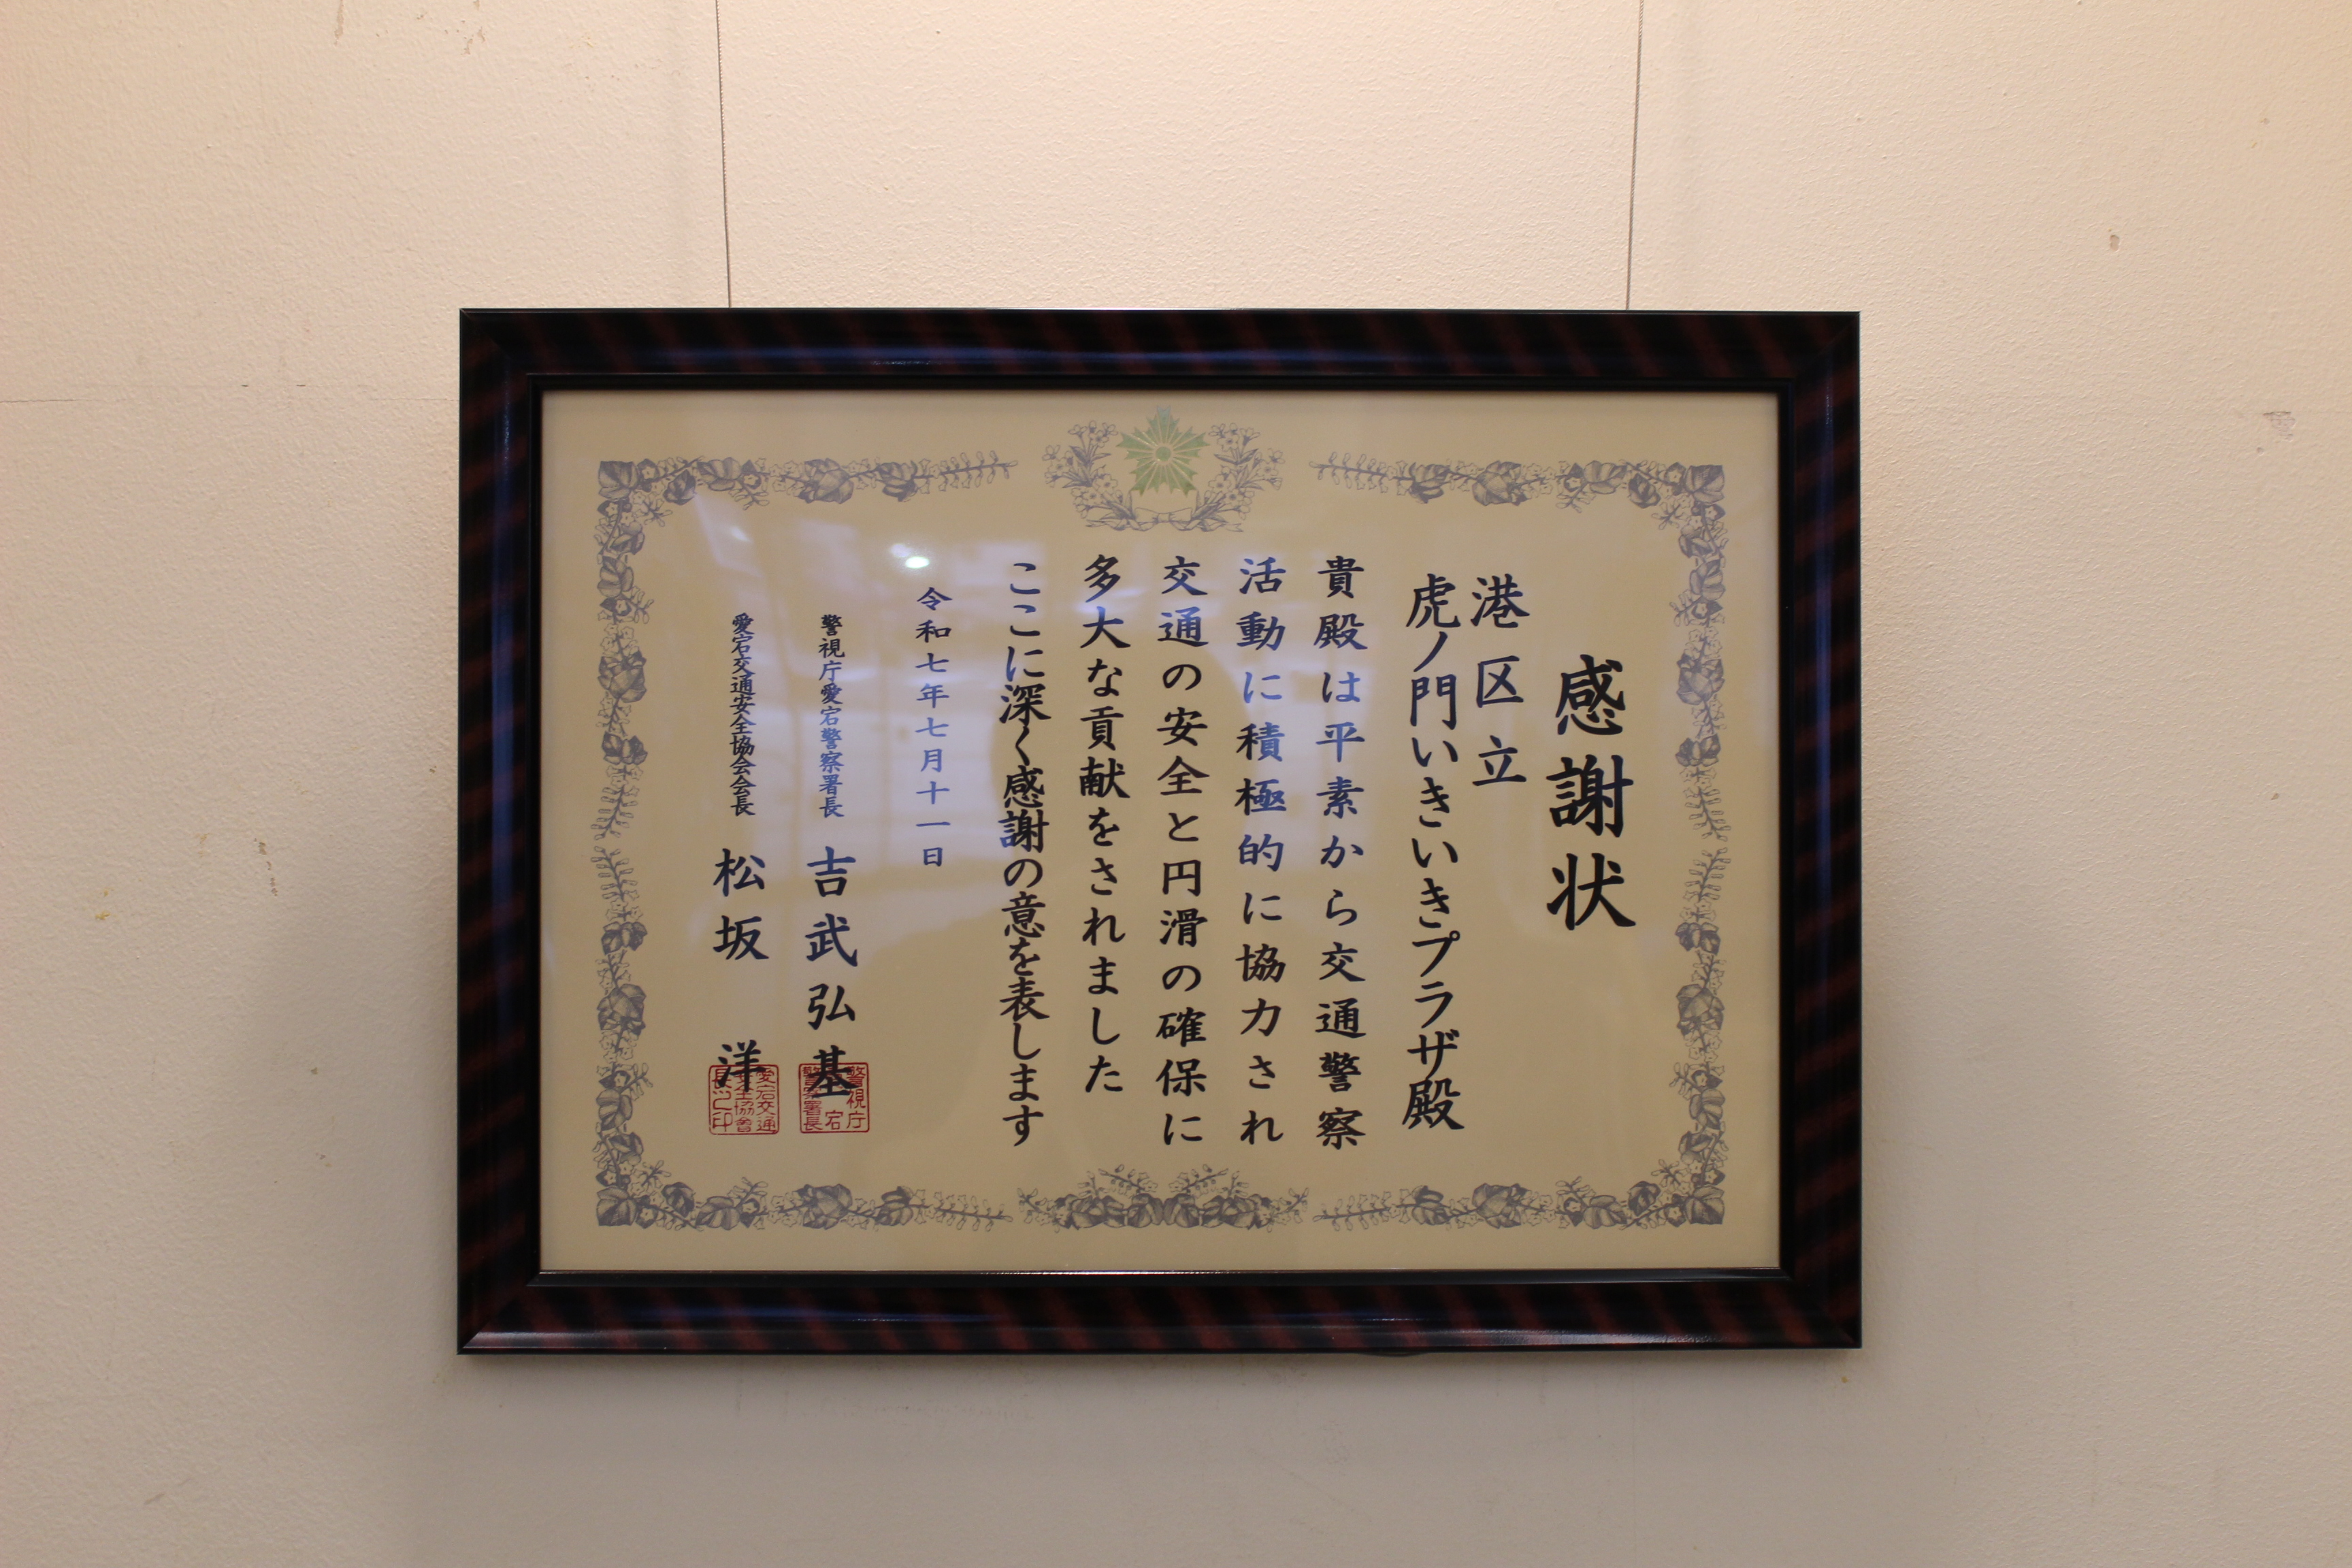 感謝状
港区立
虎ノ門いきいきプラザ殿
貴殿は平素から交通警察
活動に積極的に協力され
交通の安全と円滑の確保に
多大な貢献をされました
ここに深く感謝の意を表します
令和七年七月十一日
警視庁愛宕警察署長 吉武弘基
愛宕交通安全協会会長 松坂 洋